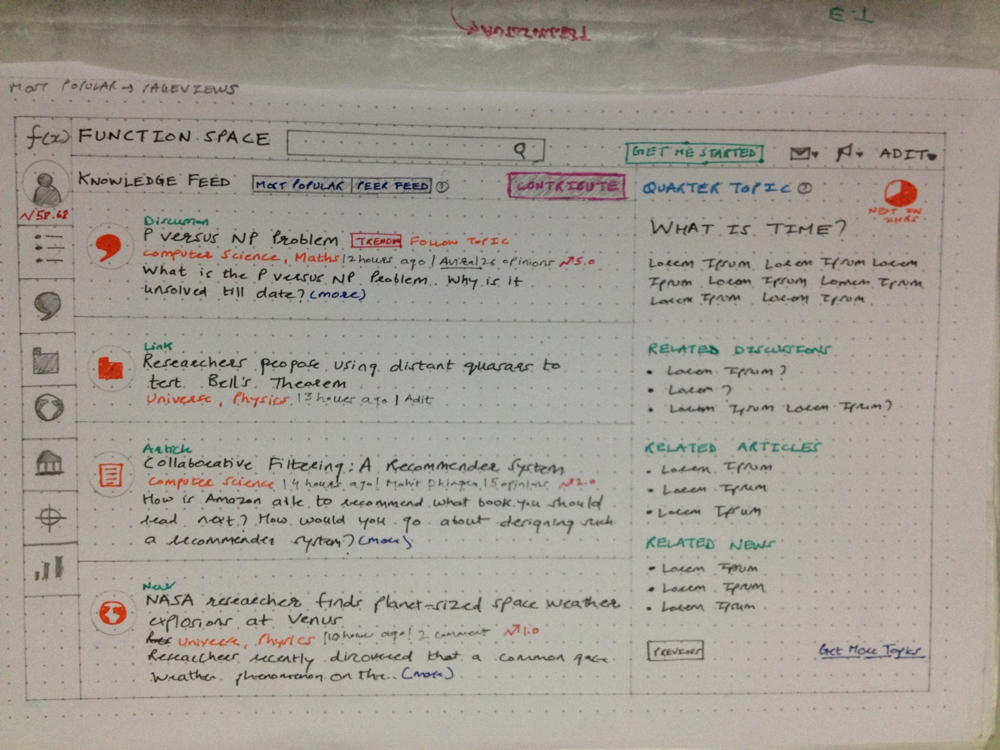 MOST POPULAR → PAGEVIEWS
f(x) FUNCTION SPACE
GET ME STARTED
ADIT
58.62
KNOWLEDGE FEED
MOST POPULAR
PEER FEED
?
CONTRIBUTE
Discussion
P VERSUS NP PROBLEM TREND FOLLOW TOPIC
Computer Science, Maths | 2 hours ago | Aviral 26 opinions 5.0
What is the P versus NP Problem. Why is it
unsolved till date? (more)
Link
Researchers propose using distant quasars to
test Bell's Theorem
Universe, Physics | 3 hours ago | Adit
Article
Collaborative Filtering: A Recommender System
Computer Science | 4 hours ago | Mohit | 5 opinions 2.0
How is Amazon able to recommend what book you should
read next? How would you go about designing such
a recommender system? (more)
News
NASA researcher finds planet-sized space weather
explosions at Venus
Universe, Physics | 10 hours ago | 2 comment 1.0
Researchers recently discovered that a common space
weather phenomenon on the.. (more)
QUARTER TOPIC ?
NEXT IN
HRS
WHAT IS TIME?
Lorem Ipsum Lorem Ipsum Lorem
Ipsum Lorem Ipsum Lorem Ipsum
Lorem Ipsum Lorem Ipsum
RELATED DISCUSSIONS
• Lorem Ipsum?
• Lorem?
• Lorem Ipsum Lorem Ipsum?
RELATED ARTICLES
• Lorem Ipsum
• Lorem Ipsum
• Lorem Ipsum
RELATED NEWS
• Lorem Ipsum
• Lorem Ipsum
• Lorem Ipsum
PREVIOUS
Get More Topics